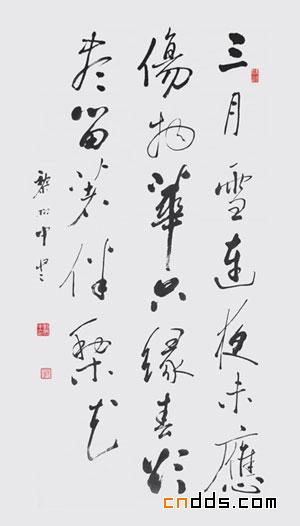 三月雪連夜未應
傷物華只緣春欲
盡留著伴梨花
cndds.com